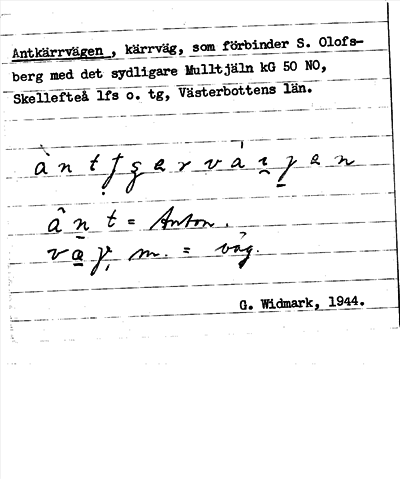 Antkärrvägen, kärrväg, som förbinder S. Olofs-
berg med det sydligare Mulltjäln kG 50 NO,
Skellefteå lfs o. tg, Västerbottens län.
ânt = Anton.
m. = väg.
G. Widmark, 1944.